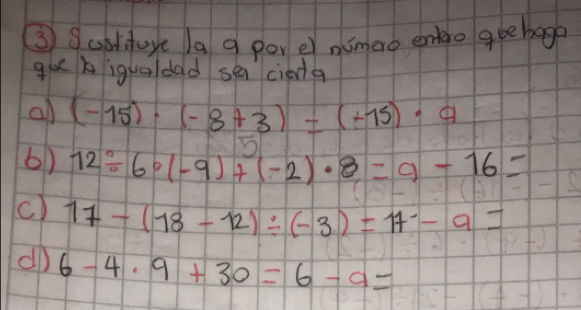 ③ Sustituye la a por el número entero que haga
que la igualdad sea cierta
a) (-15) · (-8+3) = (-15) · a
5
b) 12 ÷ 6 · (-9) + (-2) · 8 = a - 16 =
c) 17 - (18 - 12) ÷ (-3) = 17 - a =
d) 6 - 4 · 9 + 30 = 6 - a =